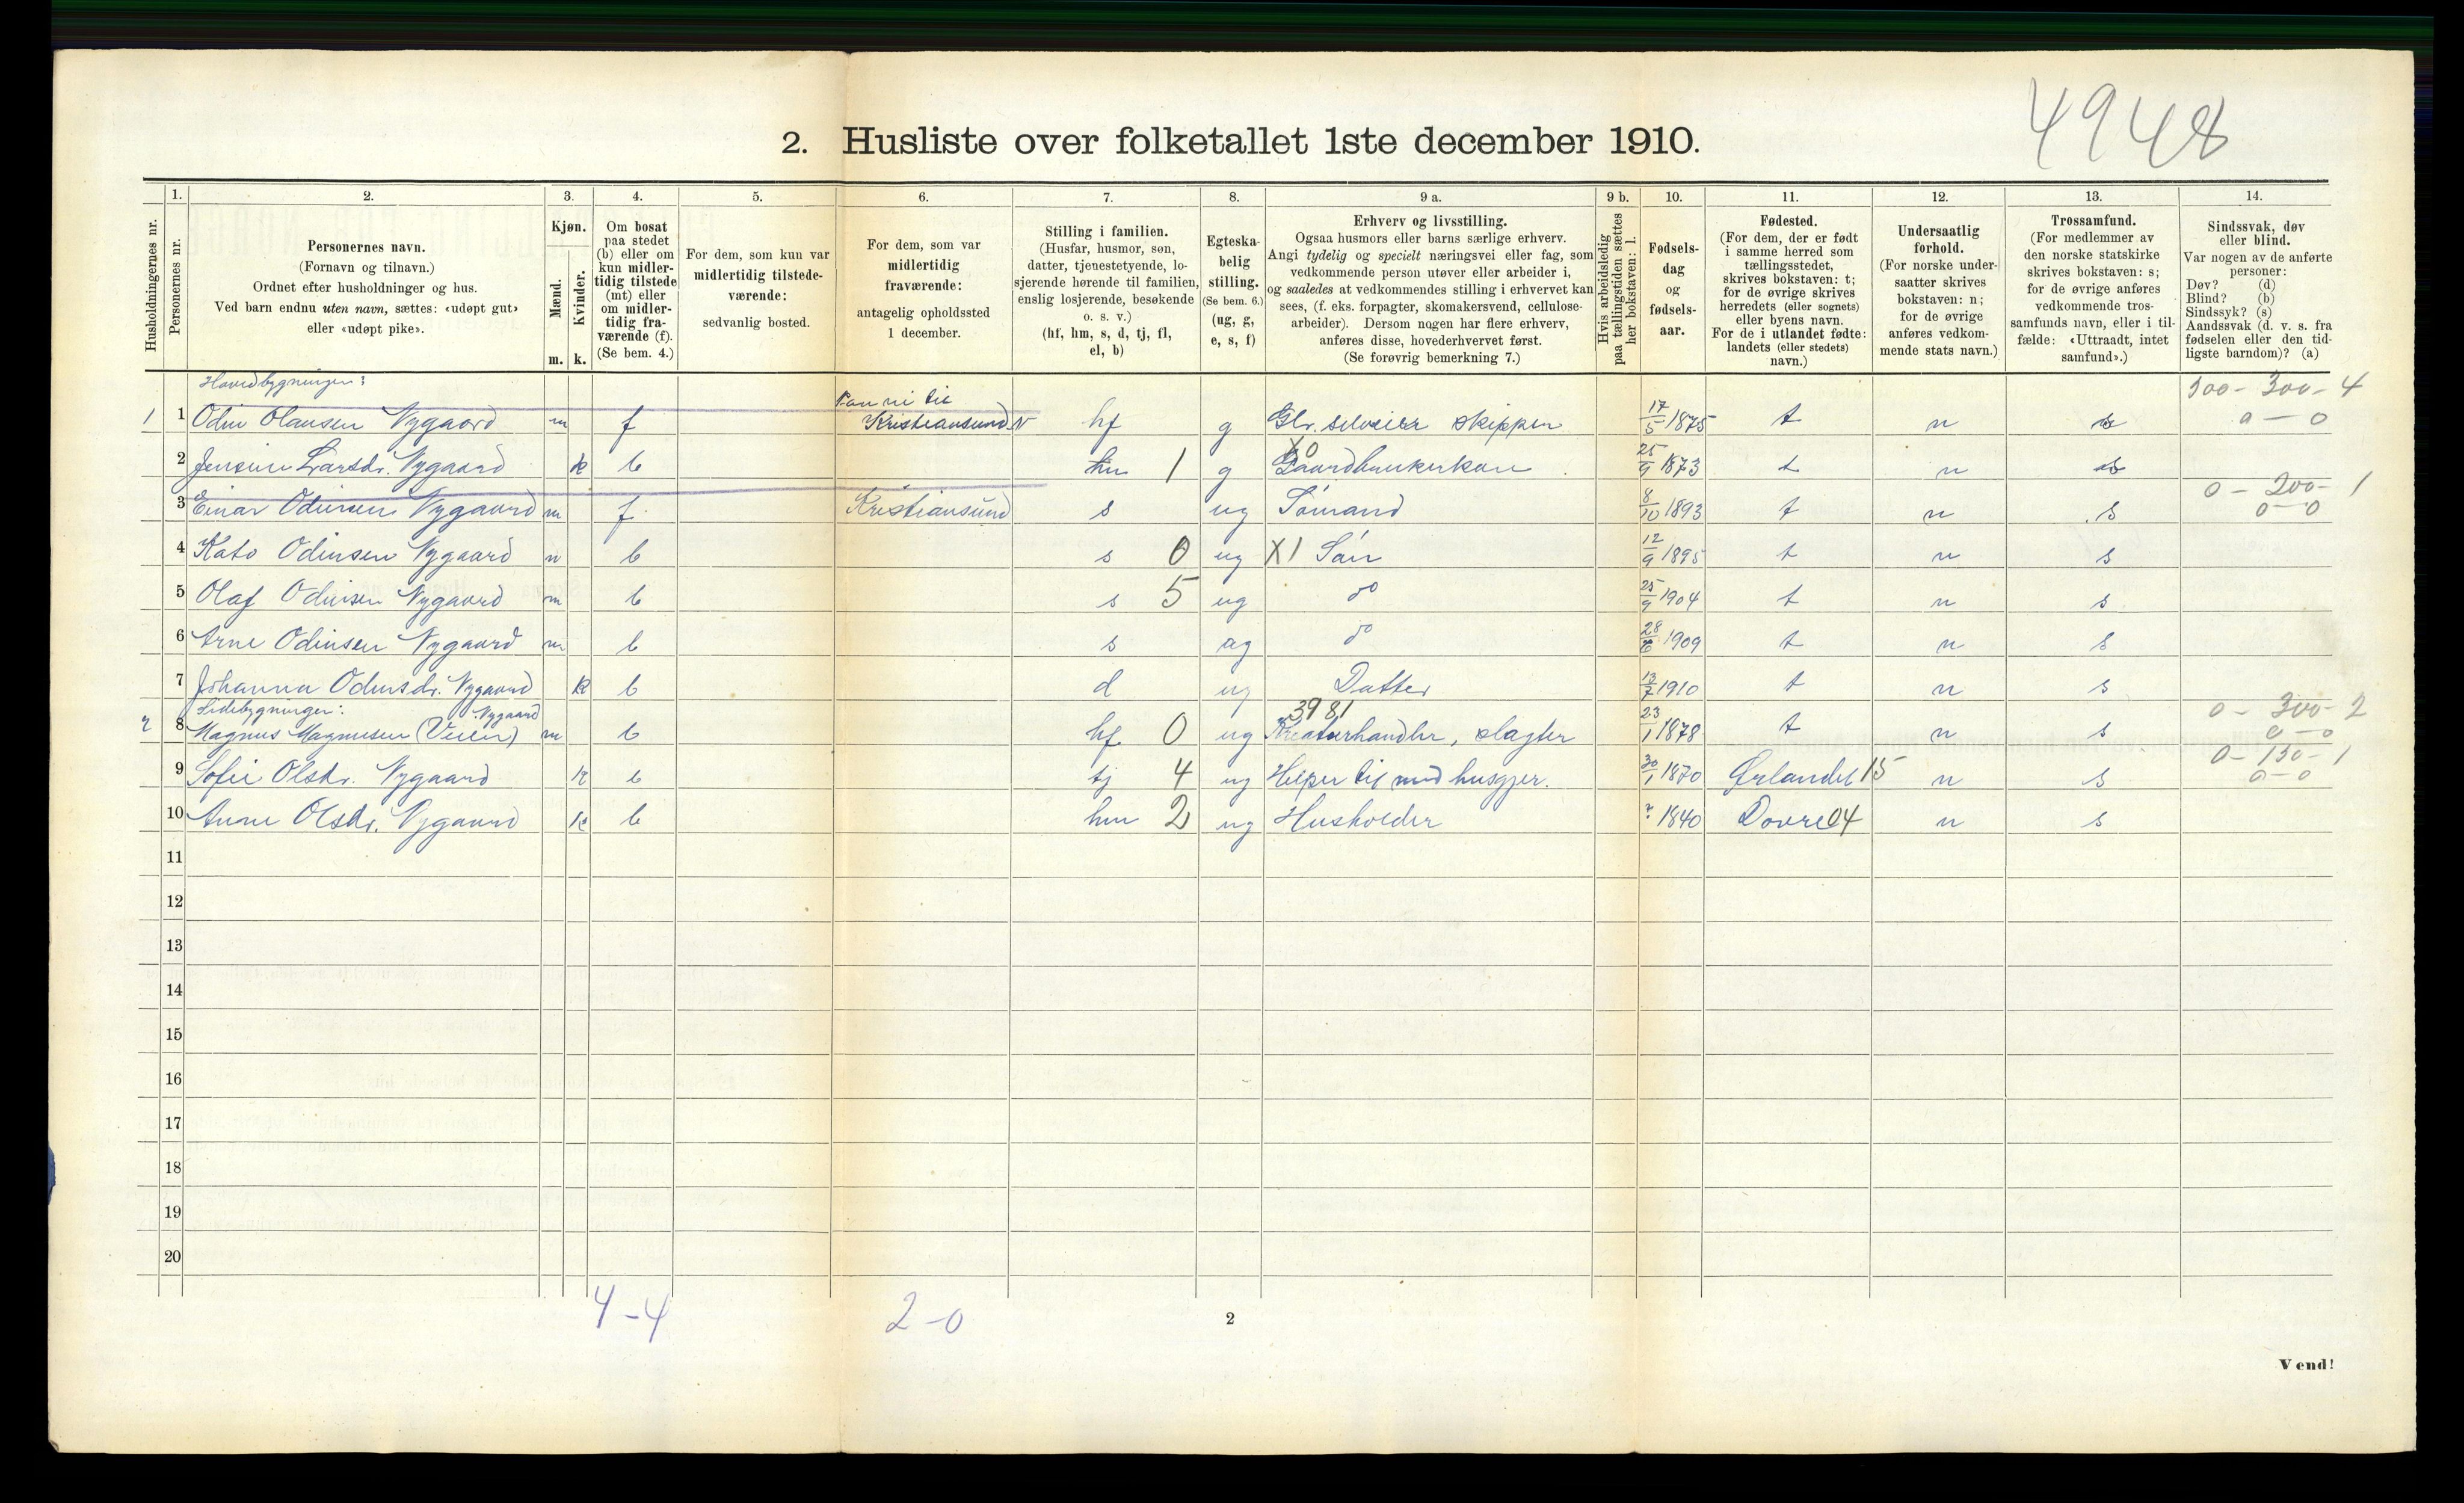 4948
2. Husliste over folketallet 1ste december 1910.
1. 2. 3. 4. 5. 6. 7. 8. 9 a. 9 b. 10. 11. 12. 13. 14.
Husholdningernes nr.
Personernes nr.
Personernes navn.
(Fornavn og tilnavn.)
Ordnet efter husholdninger og hus.
Ved barn endnu uten navn, sættes: «udøpt gut»
eller «udøpt pike».
Kjøn.
Mænd.
Kvinder.
m. k.
Om bosat
paa stedet
(b) eller om
kun midler-
tidig tilstede
(mt) eller
om midler-
tidig fra-
værende (f).
(Se bem. 4.)
For dem, som kun var
midlertidig tilstede-
værende:
sedvanlig bosted.
For dem, som var
midlertidig
fraværende:
antagelig opholdssted
1 december.
Stilling i familien.
(Husfar, husmor, søn,
datter, tjenestetyende, lo-
sjerende hørende til familien,
enslig losjerende, besøkende
o. s. v.)
(hf, hm, s, d, tj, fl,
el, b)
Egteska-
belig
stilling.
(Se bem. 6.)
(ug, g,
e, s, f)
Erhverv og livsstilling.
Ogsaa husmors eller barns særlige erhverv.
Angi tydelig og specielt næringsvei eller fag, som
vedkommende person utøver eller arbeider i,
og saaledes at vedkommendes stilling i erhvervet kan
sees, (f. eks. forpagter, skomakersvend, cellulose-
arbeider). Dersom nogen har flere erhverv,
anføres disse, hovederhvervet først.
(Se forøvrig bemerkning 7.)
Hvis arbeidsledig
paa tællingstiden sættes
her bokstaven: l.
Fødsels-
dag
og
fødsels-
aar.
Fødested.
(For dem, der er født
i samme herred som
tællingsstedet,
skrives bokstaven: t;
for de øvrige skrives
herredets (eller sognets)
eller byens navn.
For de i utlandet fødte:
landets (eller stedets)
navn.)
Undersaatlig
forhold.
(For norske under-
saatter skrives
bokstaven: n;
for de øvrige
anføres vedkom-
mende stats navn.)
Trossamfund.
(For medlemmer av
den norske statskirke
skrives bokstaven: s;
for de øvrige anføres
vedkommende tros-
samfunds navn, eller i til-
fælde: «Uttraadt, intet
samfund».)
Sindssvak, døv
eller blind.
Var nogen av de anførte
personer:
Døv? (d)
Blind? (b)
Sindssyk? (s)
Aandssvak (d. v. s. fra
fødselen eller den tid-
ligste barndom)? (a)
Hovedbygningen: 300- 4
1 1 Odin Olausen Nygaard m f Kristiansund hf g Gbr. selveier skipper 17/5 1875 t n s 0 - 0
2 Jensine Larsdr. Nygaard k b hm 1 g X0 Gaardbrukerkone 25/9 1873 t n s
0 - 200- 1
3 Einar Odinsen Nygaard m f Kristiansund s ug Sømand 8/10 1893 t n s 0-0
4 Kato Odinsen Nygaard m b s 0 ug X1 Søn 12/9 1895 t n s
5 Olaf Odinsen Nygaard m b s 5 ug do 25/9 1904 t n s
6 Arne Odinsen Nygaard m b s ug do 28/ 1909 t n s
7 Johanna Odinsdr. Nygaard k b d ug Datter 13/7 1910 t n s
Sidebygningen: Nygaard 3981 0 - 300- 2
2 8 Magnus Magnusen m b hf 0 ug Kreaturhandler, slagter 23/1 1878 t n s 0-0
0-150-1
9 Sofie Olsdr. Nygaard k b tj 4 ug Helper til med husgjer. 30/1 1870 Ørlandet 15 n s 0-0
10 Anne Olsdr. Nygaard k b hm 2 ug Husholder ? 1840 Dovre 04 n s
11
12
13
14
15
16
17
18
19
20
4-4 2-0
2
Vend!